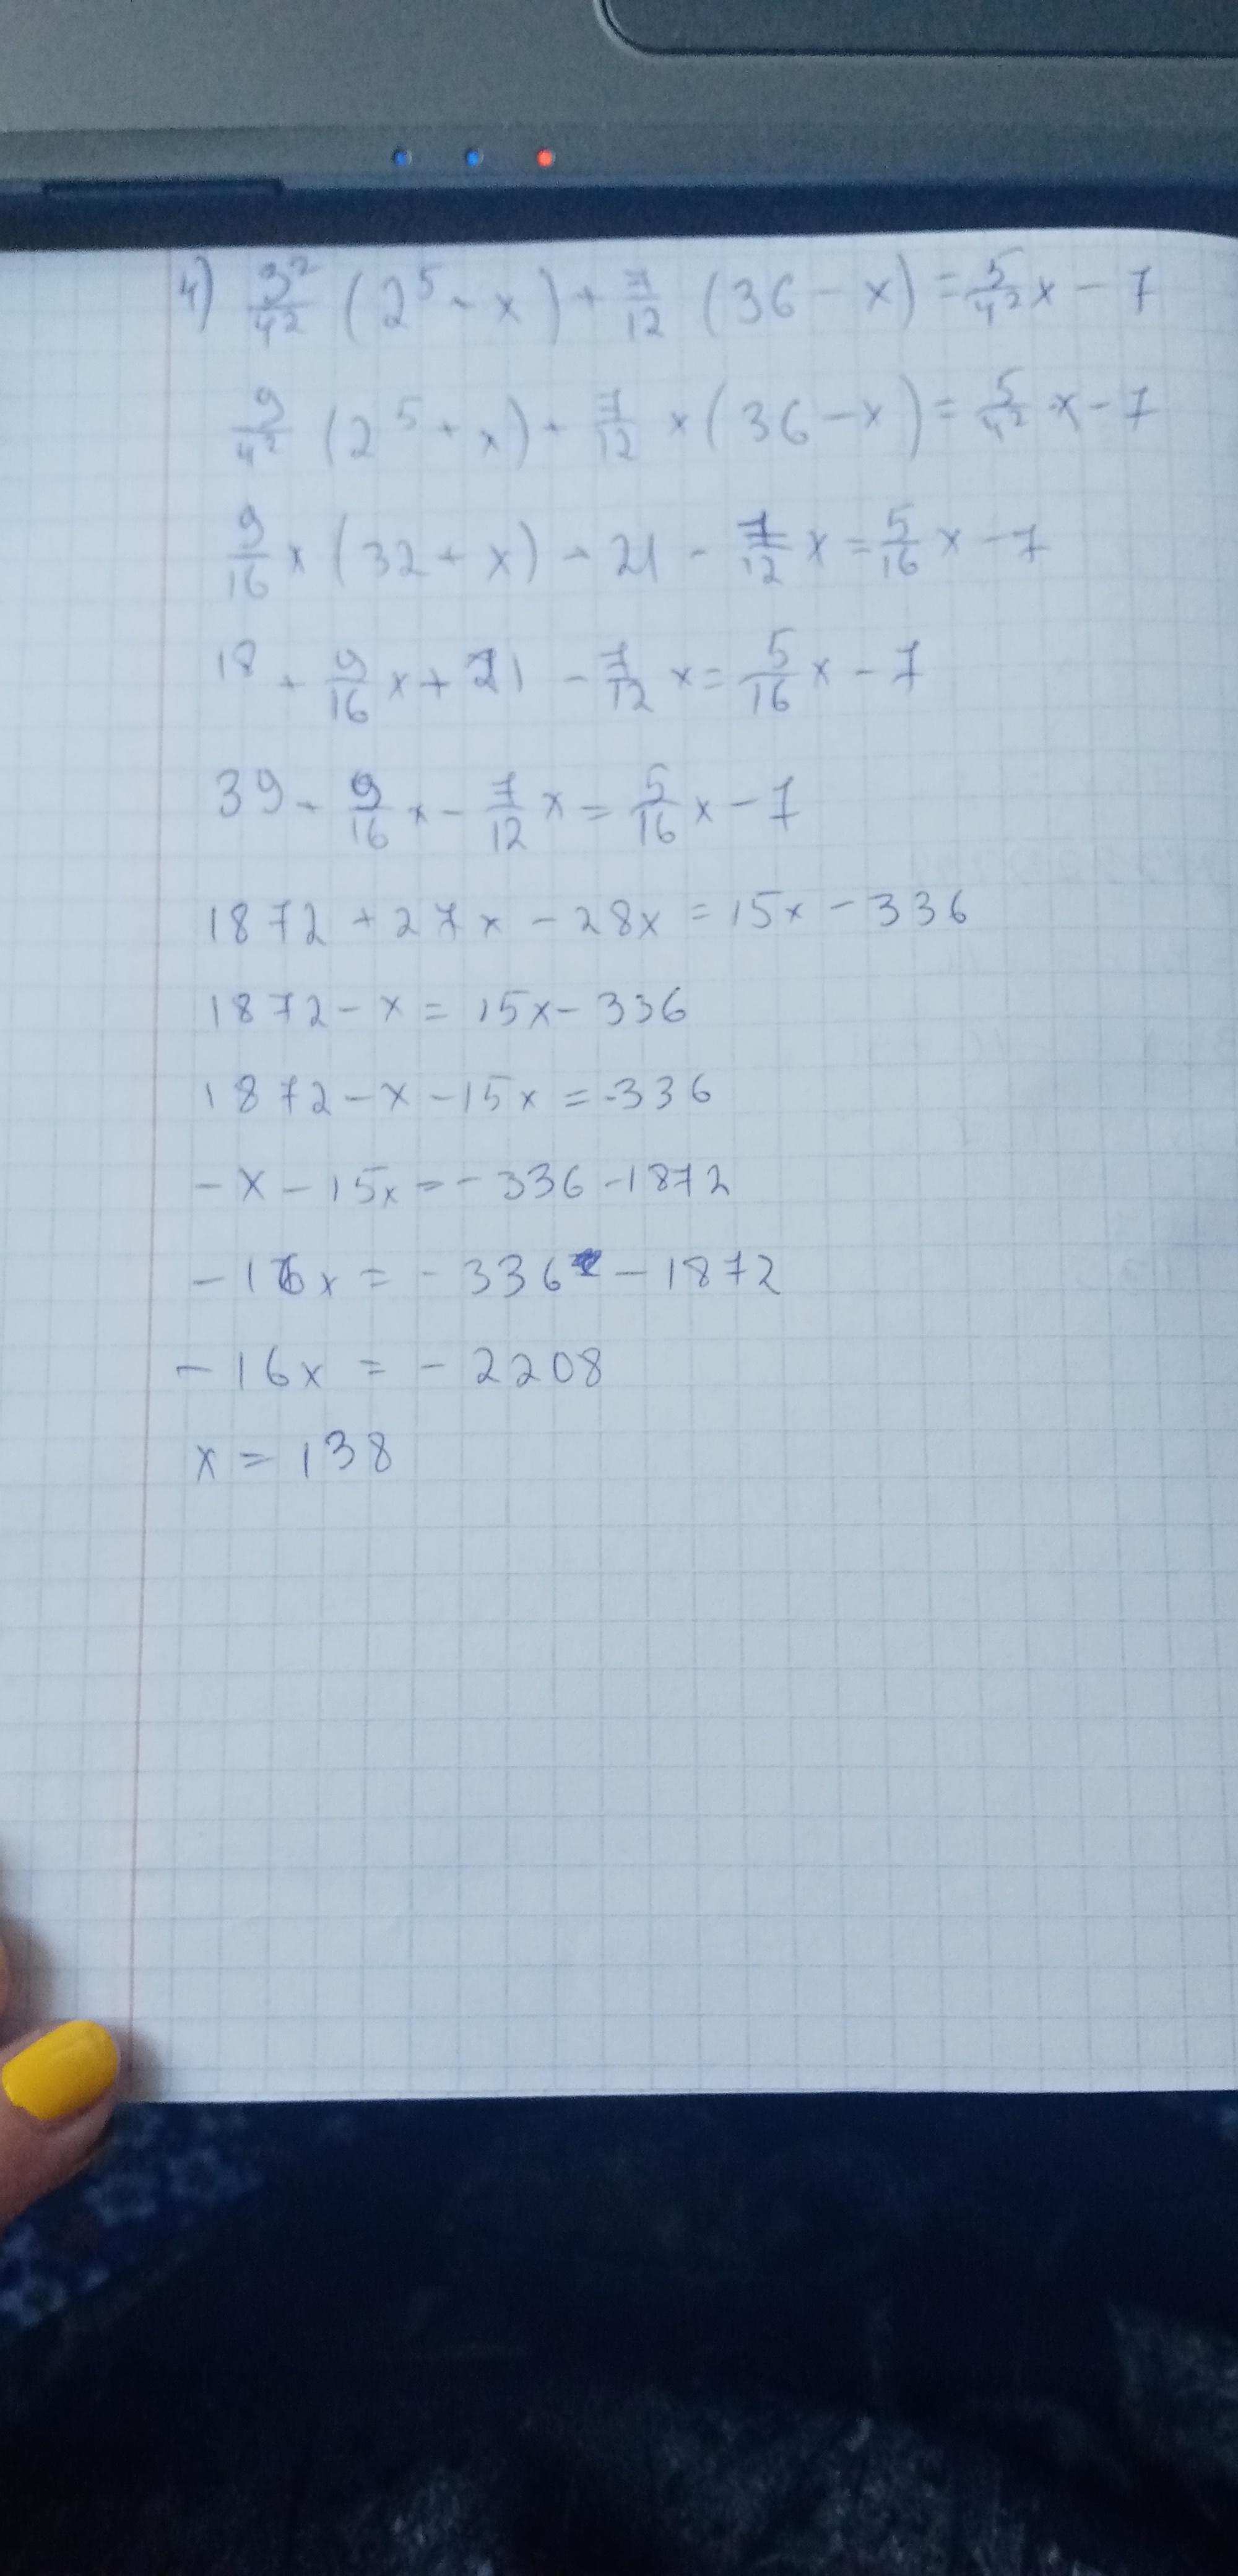 4) 3²/4² (2⁵ + x) + 7/12 (36 - x) = 5/4² x - 7
9/4² (2⁵ + x) + 7/12 × (36 - x) = 5/4² · x - 7
9/16 × (32 + x) + 21 - 7/12 x = 5/16 x - 7
18 + 9/16 x + 21 - 7/12 x = 5/16 x - 7
39 + 9/16 x - 7/12 x = 5/16 x - 7
1872 + 27x - 28x = 15x - 336
1872 - x = 15x - 336
1872 - x - 15x = -336
- x - 15x = - 336 - 1872
- 16x = - 336 - 1872
- 16x = - 2208
x = 138